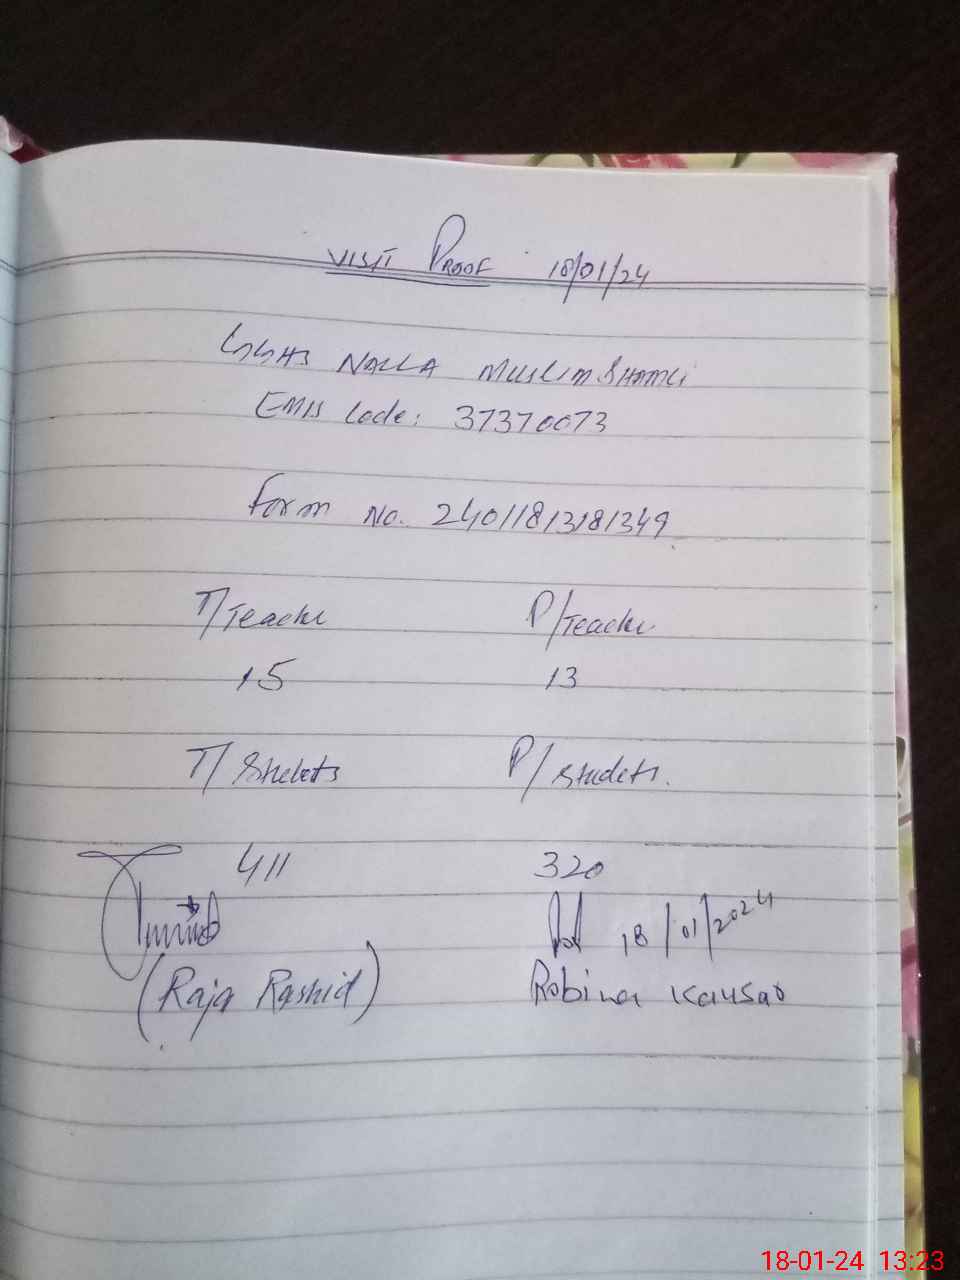 VISIT PROOF 18/01/24
GGHS NALLA MUSLIM SHAMLI
EMIS Code: 37370073
Form No. 24011813181349
T/Teache P/Teache
15 13
T/Studets P/Studets.
411 320
18/01/2024
(Raja Rashid) Robina Kausar
18-01-24 13:23